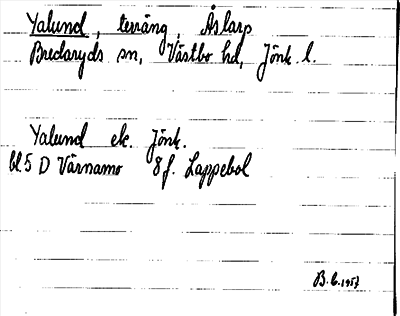 Yalund, terräng, Åslarp
Bredaryds sn, Västbo hd, Jönk. l.
Yalund ek. Jönk.
bl 5 D Värnamo 8 f. Lappebol
B. C. 1957